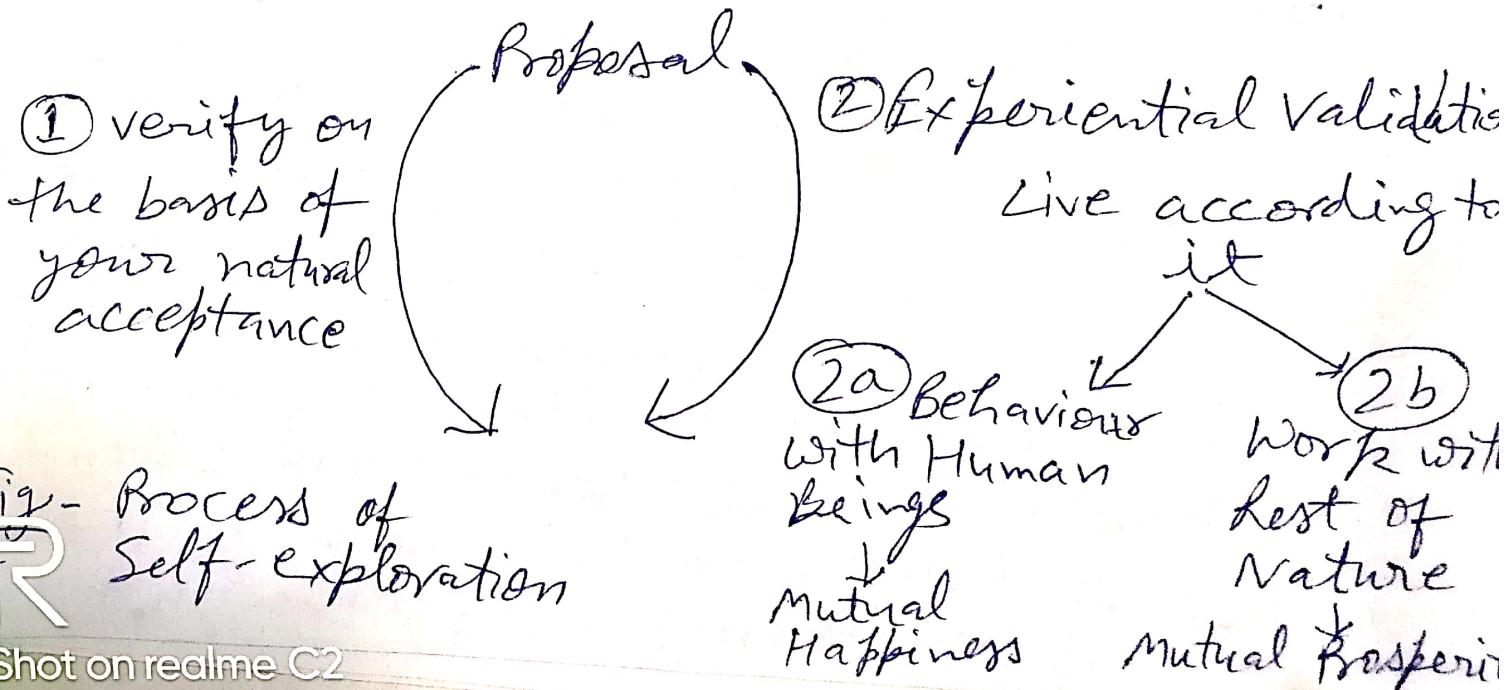 Proposal
① verify on
the basis of
your natural
acceptance
② Experiential Validatio
Live according to
it
2a Behaviour
with Human
Beings
Mutual
Happiness
2b
Work wit
Rest of
Nature
Mutual Prosperi
ig- Process of
Self-exploration
R
Shot on realme C2